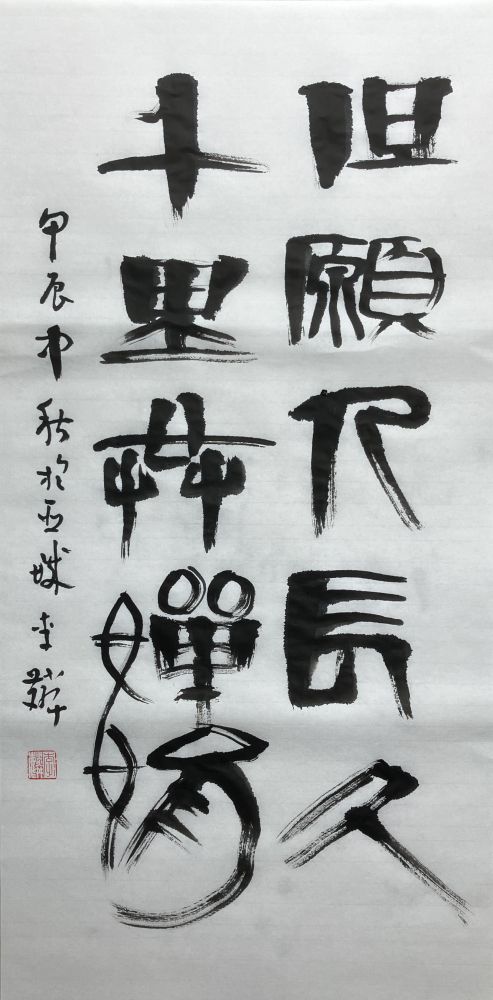 但願人長久
千里共嬋娟
甲辰中秋於城李